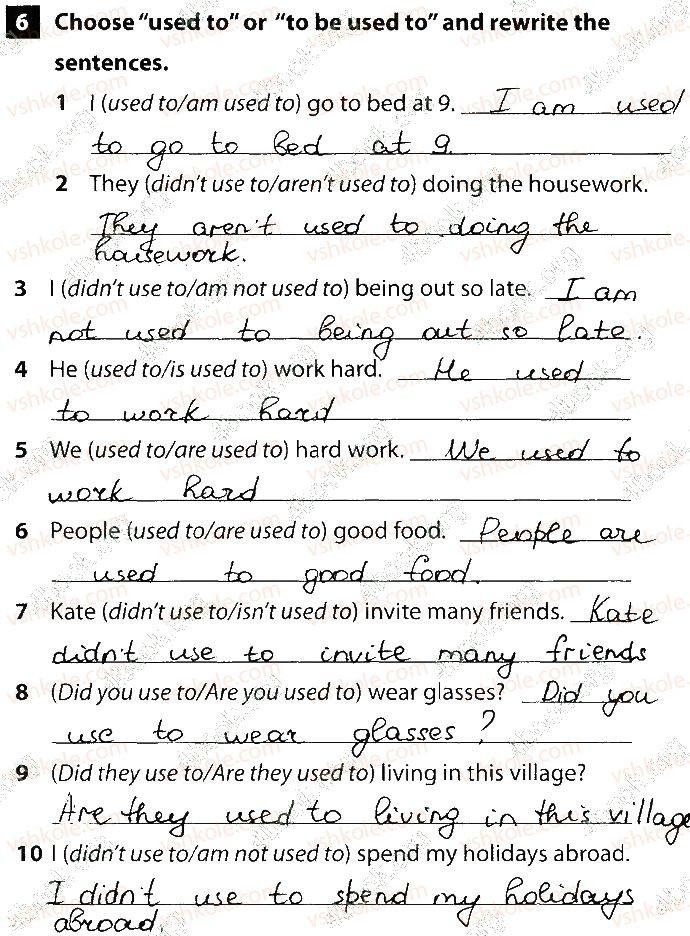 6 Choose "used to" or "to be used to" and rewrite the
sentences.
1 I (used to/am used to) go to bed at 9. I am used
to go to bed at 9.
2 They (didn't use to/aren't used to) doing the housework.
They aren't used to doing the
housework.
3 I (didn't use to/am not used to) being out so late. I am
not used to being out so late.
4 He (used to/is used to) work hard. He used
to work hard
5 We (used to/are used to) hard work. We used to
work hard
6 People (used to/are used to) good food. People are
used to good food.
7 Kate (didn't use to/isn't used to) invite many friends. Kate
didn't use to invite many friends
8 (Did you use to/Are you used to) wear glasses? Did you
use to wear glasses?
9 (Did they use to/Are they used to) living in this village?
Are they used to living in this village
10 I (didn't use to/am not used to) spend my holidays abroad.
I didn't use to spend my holidays
abroad.